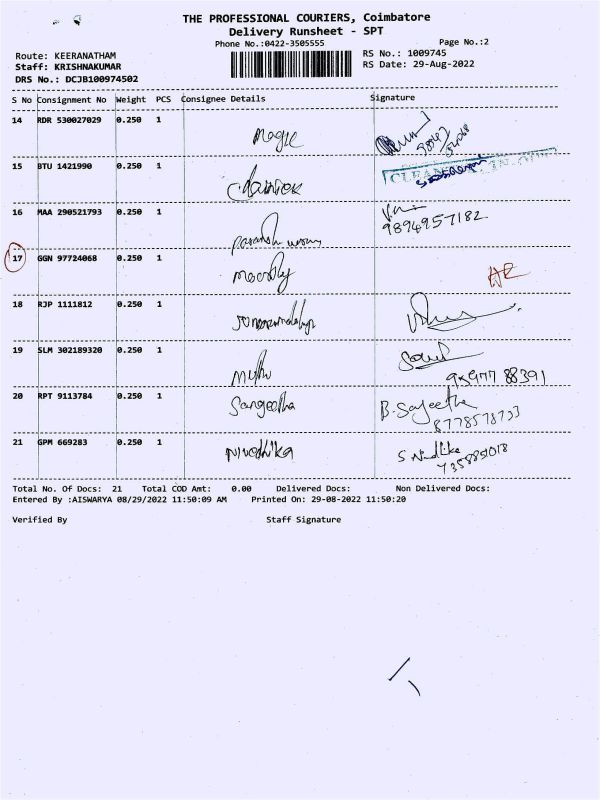 THE PROFESSIONAL COURIERS, Coimbatore
Delivery Runsheet - SPT
Phone No.:0422-3505555 Page No.:2
Route: KEERANATHAM RS No.: 1009745
Staff: KRISHNAKUMAR RS Date: 29-Aug-2022
DRS No.: DCJB100974502
S No Consignment No Weight PCS Consignee Details Signature
14 RDR 530027029 0.250 1 magic
15 BTU 1421990 0.250 1
16 MAA 290521793 0.250 1
9894957182
17 GGN 97724068 0.250 1
18 RJP 1111812 0.250 1
19 SLM 302189320 0.250 1 muthu
20 RPT 9113784 0.250 1 Sangeetha
21 GPM 669283 0.250 1 Nivedhika
Total No. Of Docs: 21 Total COD Amt: 0.00 Delivered Docs: Non Delivered Docs:
Entered By :AISWARYA 08/29/2022 11:50:09 AM Printed On: 29-08-2022 11:50:20
Verified By Staff Signature